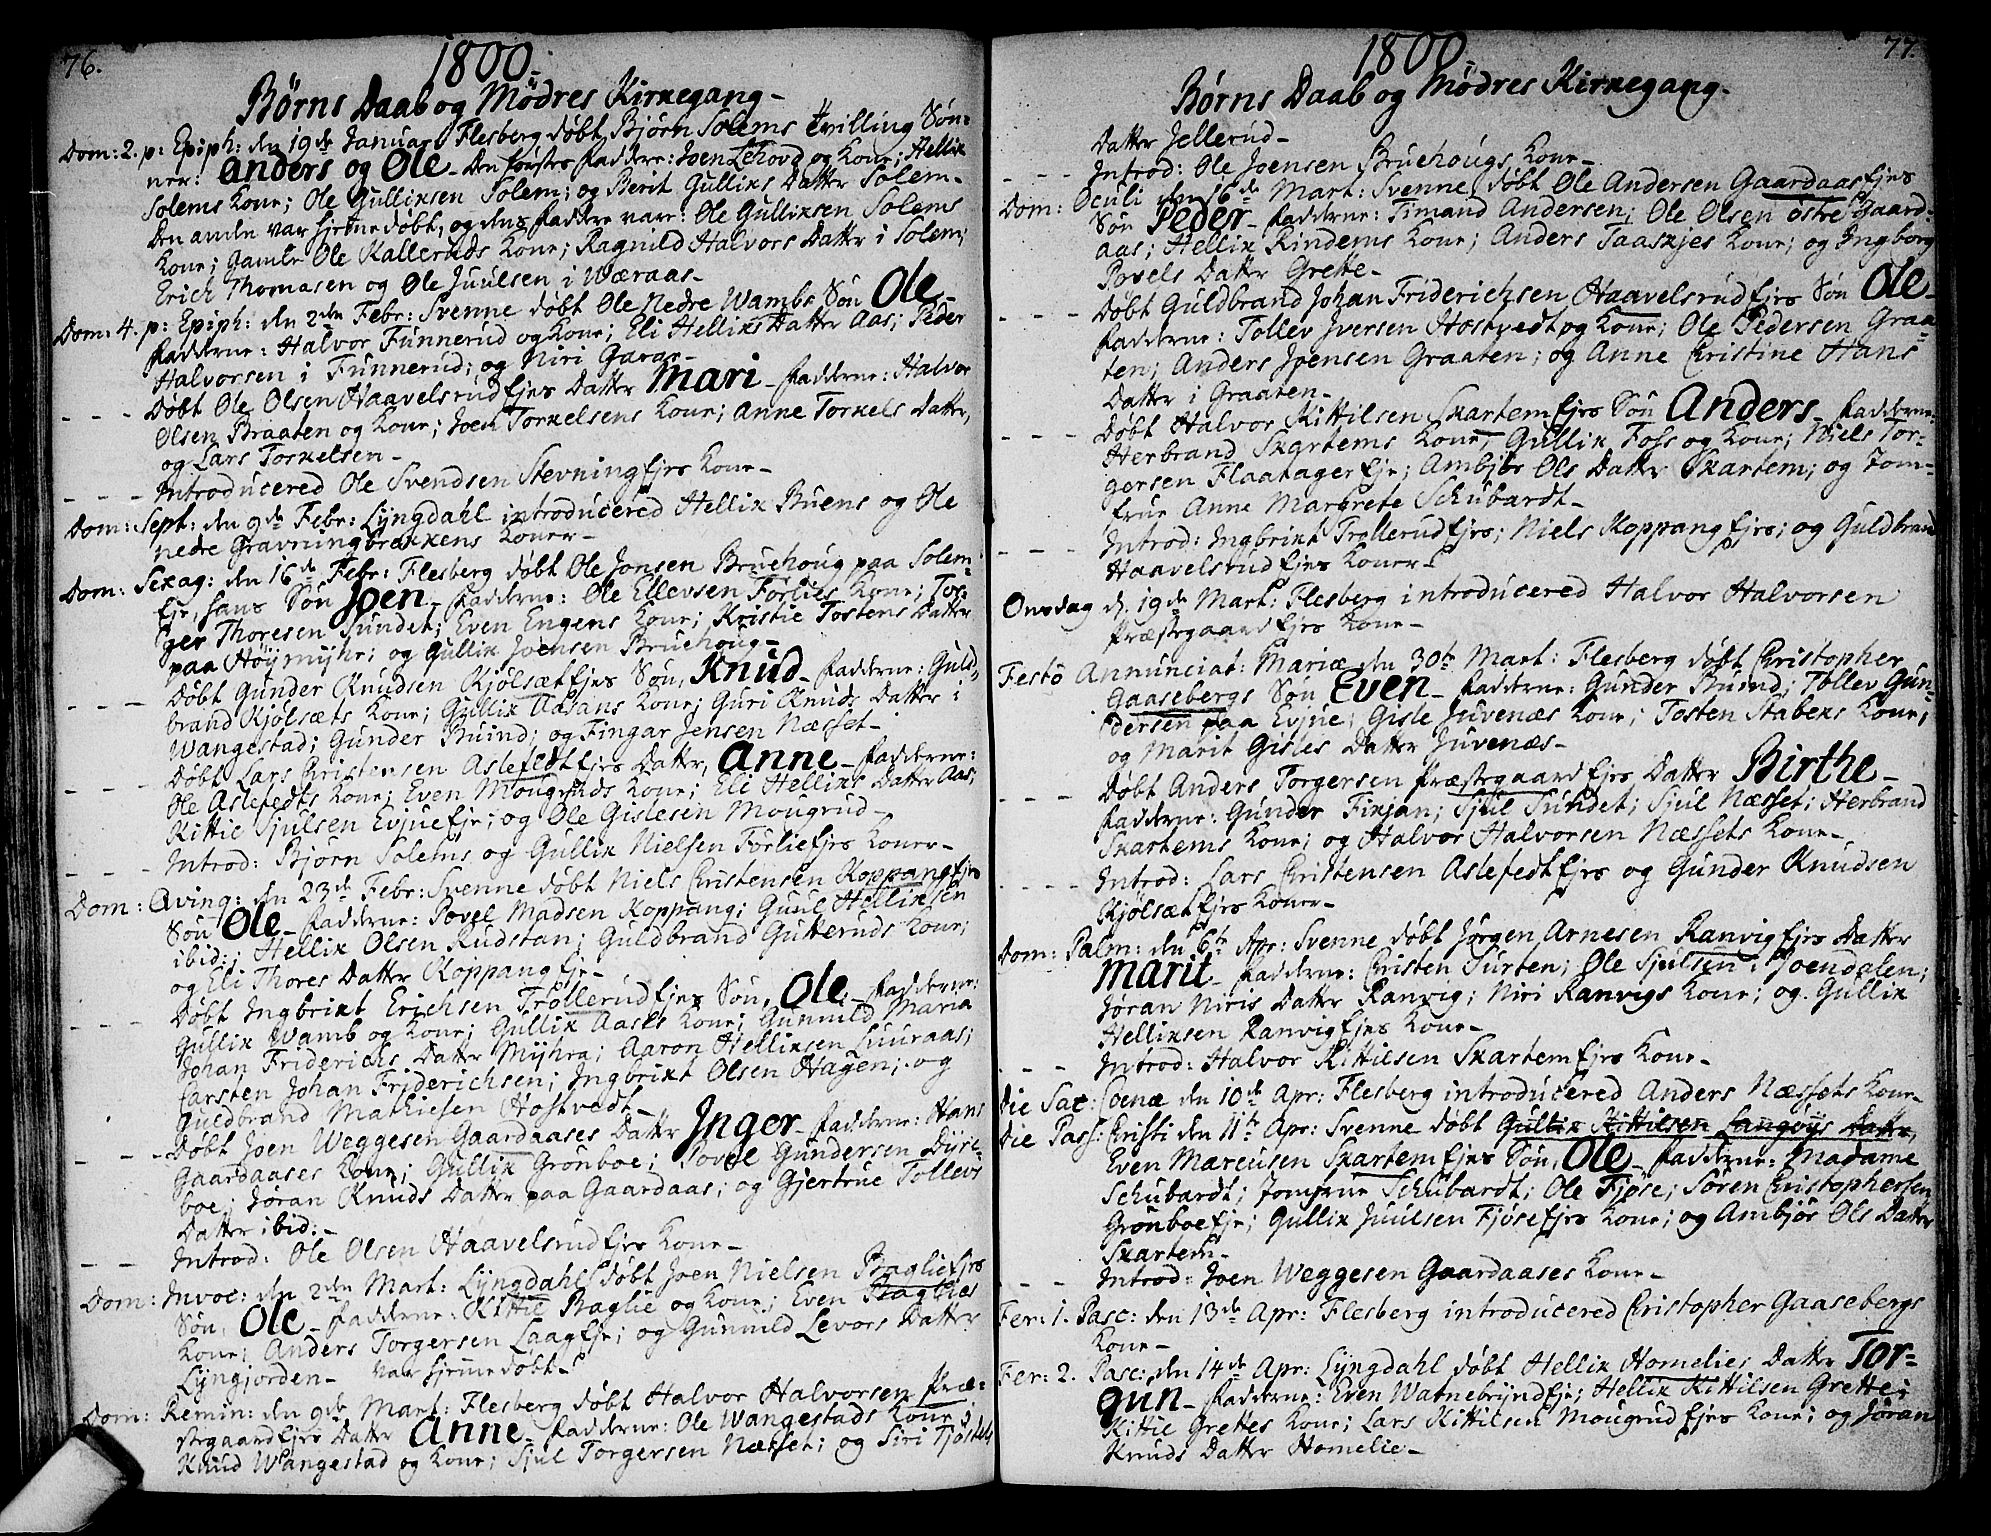 76.
1800.
Børns Daab og Mødres Kirkegang.
Dom: 2. p: Epiph: den 19de Januar: Flesberg døbt Bjørn Solems Tvilling Søn-
ner: Anders og Ole. Den førstes Faddere: Joen Lehovd og Kone; Hellik
Solems Kone; Ole Gulliksen Solem; og Berit Gulliks Datter Solem.
Den anden var hjemedøbt, og dens Faddere vare: Ole Gulliksen Solems
Kone; Gamle Ole Kalleruds Kone; Ragnild Halvors Datter i Solem;
Erich Thomasen og Ole Juulsen i Wæraas.
Dom: 4. p: Epiph: den 2den Febr: Svenne døbt Ole Nedre Wambs Søn Ole.
Fadderne: Halvor Funnerud og Kone; Eli Helliks Datter Aas; Peder
Halvorsen i Funnerud; og Niri Garaas.
- - - Døbt Ole Olsen Haavelsrudfjes Datter Mari. Fadderne: Halvor
Olsen Braaten og Kone; Joen Torkelsens Kone; Anne Torkels Datter,
og Lars Torkelsen.
- - - Introducered Ole Svendsen Stevningfjes Kone.
Dom: Sept: den 9de Febr: Lyngdahl introducered Hellik Buens og Ole
nedre Gravningbrekkens Koner.
Dom: Sexag: den 16de Febr: Flesberg døbt Ole Jonsen Bruehoug paa Solem-
fje, hans Søn Joen. Fadderne: Ole Ellevsen Forlies Kone; Tor-
ger Thoresen Sundet; Even Engens Kone; Kristie Tostens Datter
paa Høymyhr; og Gullik Joensen Bruehoug.
- - - Døbt Gunder Knudsen Kjølsætfjes Søn, Knud. Fadderne: Guld-
brand Kjølsæts Kone; Gullik Aasans Kone; Guri Knuds Datter i
Wangestad; Gunder Buind; og Fingar Jensen Næsset.
- - - Døbt Lars Christensen Aslefedtfjes Datter, Anne. Fadderne:
Ole Aslefedts Kone; Even Mougruds Kone; Eli Helliks Datter Aas;
Kittil Sjulsen Evjuefje; og Ole Gislesen Mougrud.
- - - Introd: Bjørn Solems og Gullik Nielsen Forliefjes Koner.
Dom: Qving: den 23de Febr: Svenne døbt Niels Christensen Koppangfjes
Søn Ole. Fadderne: Povel Madsen Koppang; Guul Helliksen
ibid:; Hellik Olsen Rudstan; Guldbrand Gutteruds Kone;
og Eli Thores Datter Koppangfje.
- - - Døbt Ingbrikt Erichsen Trollerudfjes Søn, Ole. Fadderne:
Gullik Wamb og Kone; Gullik Aases Kone; Gunnild Maria
Johan Friderichs Datter Myhra; Aaron Helliksen Luuraas;
Carsten Johan Friderichsen; Ingbrikt Olsen Hagen; og
Guldbrand Mathiesen Hostvedt.
- - - Døbt Joen Weggesen Gaardaases Datter Inger. Fadderne: Hans
Gaardaases Kone; Gullik Grønboe; Povel Gundersen Dyre-
boe; Jøran Knuds Datter paa Gaardaas; og Gjertrue Tollevs
Datter ibid:.
- - Introd: Ole Olsen Haavelsrudfjes Kone.
Dom: Invoc: den 2den Mart: Lyngdahl døbt Joen Nielsen Bagliefjes
Søn, Ole. Fadderne: Kittil Baglie og Kone; Even Baglies
Kone; Anders Torgersen Laagfje; og Gunnild Levors Datter
Lyngjorden. Var hjemedøbt.
Dom: Remin: den 9de Mart: Flesberg døbt Halvor Halvorsen Præ-
stegaardfjes Datter Anne. Fadderne: Ole Wangestads Kone;
Knud Wangestad og Kone; Sjul Torgersen Næsset; og Siri Tjøstels
77.
1800.
Børns Daab og Mødres Kirkegang.
Datter Jellerud.
- - - Introd: Ole Joensen Bruehougs Kone.
Dom: Oculi den 16de Mart: Svenne døbt Ole Andersen Gaardaasfjes
Søn Peder. Fadderne: Timand Andersen; Ole Olsen østre Gaard-
aas; Hellik Rindems Kone; Anders Taaskjes Kone; og Ingborg
Povels Datter Grette.
- - - Døbt Guldbrand Johan Friderichsen Haavelsrudfjes Søn Ole.
Fadderne: Tollev Iversen Hostvedt og Kone; Ole Pedersen Graa-
ten; Anders Joensen Graaten; og Anne Christine Hans
Datter i Graaten.
- - - Døbt Halvor Kittilsen Skartemfjes Søn Anders. Fadderne:
Herbrand Skartems Kone; Gullik Foss og Kone; Niels Tor-
gersen Flaatagerfje; Ambjør Ols Datter Skartem; og Jom-
frue Anne Margrete Schubardt.
- - - Introd: Ingbrikt Trollerudfjes; Niels Koppangfjes; og Guldbrand
Haavelsrudfjes Koner.
Onsdag d. 19de Mart: Flesberg introducered Halvor Halvorsen
Præstegaardfjes Kone.
Festo Annunciat: Mariæ den 30te Mart: Flesberg døbt Christopher
Gaasebergs Søn Even. Fadderne: Gunder Buind; Tollev Gun-
dersen paa Evjue; Gisle Juvenæs Kone; Tosten Stabeks Kone;
og Marit Gisles Datter Juvenæs.
- - - Døbt Anders Torgersen Præstegaardfjes Datter Birthe.
Fadderne: Gunder Fikjan; Sjul Sundet; Sjul Næsset; Herbrand
Skartems Kone; og Halvor Halvorsen Næssets Kone.
- - - Introd: Lars Christensen Aslefedtfjes og Gunder Knudsen
Kjølsætfjes Koner.
Dom: Palm: den 6te Apr: Svenne døbt Jørgen Arnesen Ranvigfjes Datter
Marit. Fadderne: Christen Surten; Ole Sjulsen i Joendalen;
Jøran Niris Datter Ranvig; Niri Ranvigs Kone; og Gullik
Helliksen Ranvigfjes Kone.
- - - Introd: Halvor Kittilsen Skartemfjes Kone.
Die Sac: Coenæ den 10de Apr: Flesberg introducered Anders Næssets Kone.
Die Pass: Christi den 11te Apr: Svenne døbt Gullik Kittilsen Langøys Datter,
Even Marcusen Skartemfjes Søn, Ole. Fadderne: Madame
Schubardt; Jomfrue Schubardt; Ole Fjøse; Søren Christophersen
Grønboefje; Gullik Juulsen Fjøsefjes Kone; og Ambjør Ols Datter
Skartem.
- - - Introd: Joen Weggesen Gaardaases Kone.
Fer: 1. Pasc: den 13de Apr: Flesberg introducered Christopher Gaasebergs
Kone.
Fer: 2. Pasc: den 14de Apr: Lyngdahl døbt Hellik Homelies Datter Tor-
gun. Fadderne: Even Watnebryndfje; Hellik Kittilsen Grette;
Kittil Grettes Kone; Lars Kittilsen Mougrudfjes Kone; og Jøran
Knuds Datter Homelie.